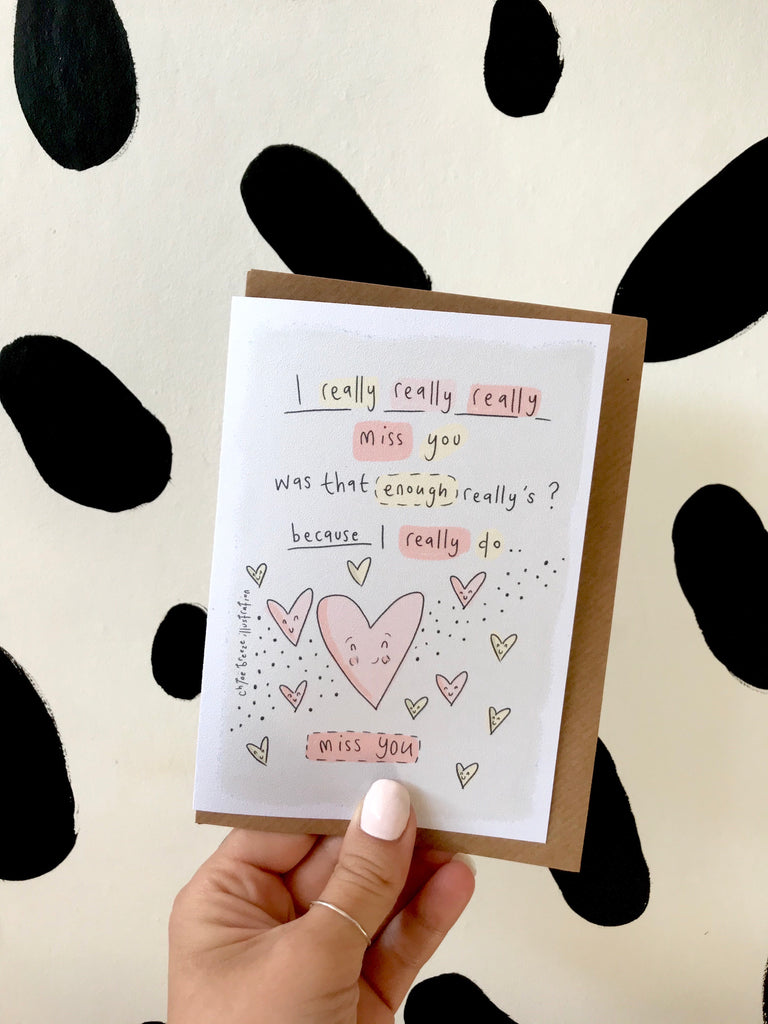 I really really really
miss you
was that enough really's ?
because I really do..
chloe breeze illustration
miss you